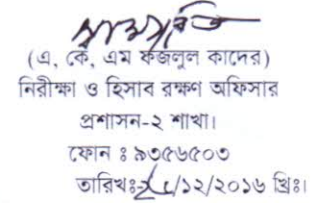 (এ, কে, এম ফজলুল কাদের)
নিরীক্ষা ও হিসাব রক্ষণ অফিসার
প্রশাসন-২ শাখা।
ফোন ঃ ৯৩৫৬৫০৩
তারিখঃ /১২/২০১৬ খ্রিঃ।